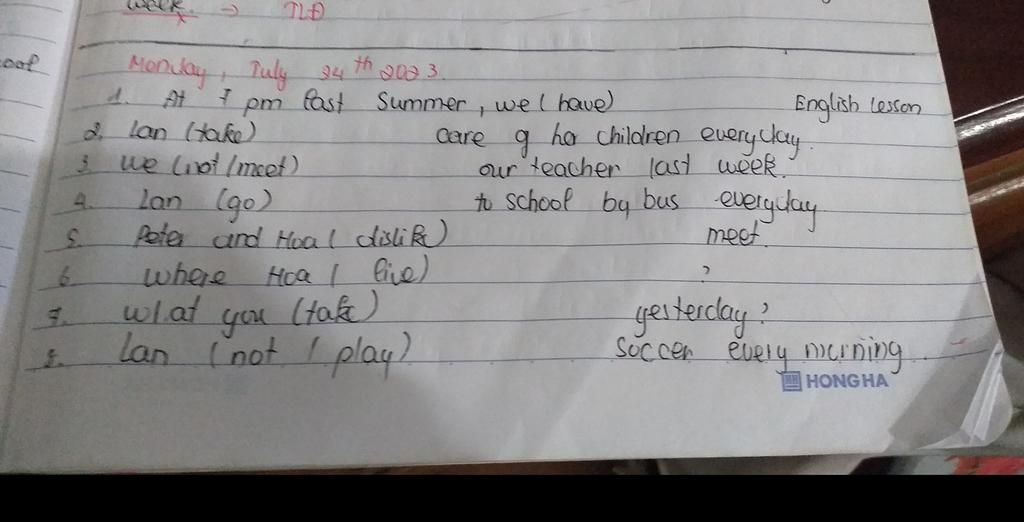 week → TLĐ
Monday, July 24th 2023.
1. At 7 pm last summer, we (have) English lesson
2, lan (take) care of her children everyday.
3. we (not/meet) our teacher last week.
4. lan (go) to school by bus everyday
5. Peter and Hoa (dislike) meet.
6. where Hoa / live) ?
7. what you (take) yesterday?
8. lan (not / play) soccer every morning.
HONG HA